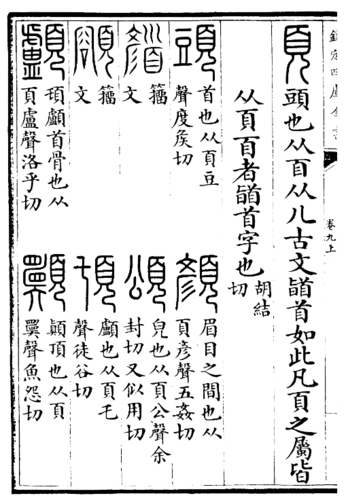 欽定四庫全書
卷九上
頁頭也从𦣻从儿古文䭫首如此凡頁之屬皆
从頁百者䭫首字也胡結
切
頭首也从頁豆
聲度矦切
顔眉目之間也从
頁彦聲五姦切
籀
文
頌皃也从頁公聲余
封切又似用切
籀
文
𩑒顱也从頁乇
聲徒谷切
顱頊顱首骨也从
頁盧聲洛乎切
顚頂也从頁
㒹聲魚怨切